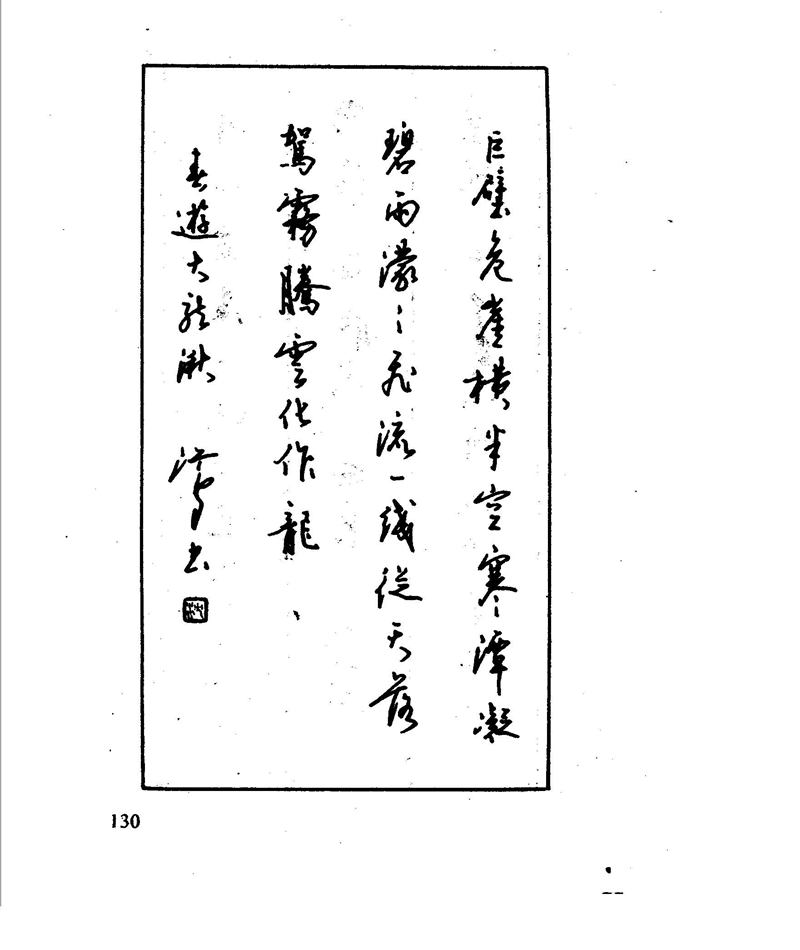 巨壁危崖橫半空寒潭凝
碧雨濛〻飛流一綫從天落
駕霧騰雲化作龍
春遊大龍湫 書
130